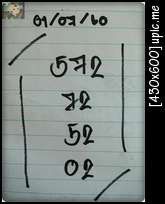 01/07/60
572
72
52
02
[430x600] upic.me